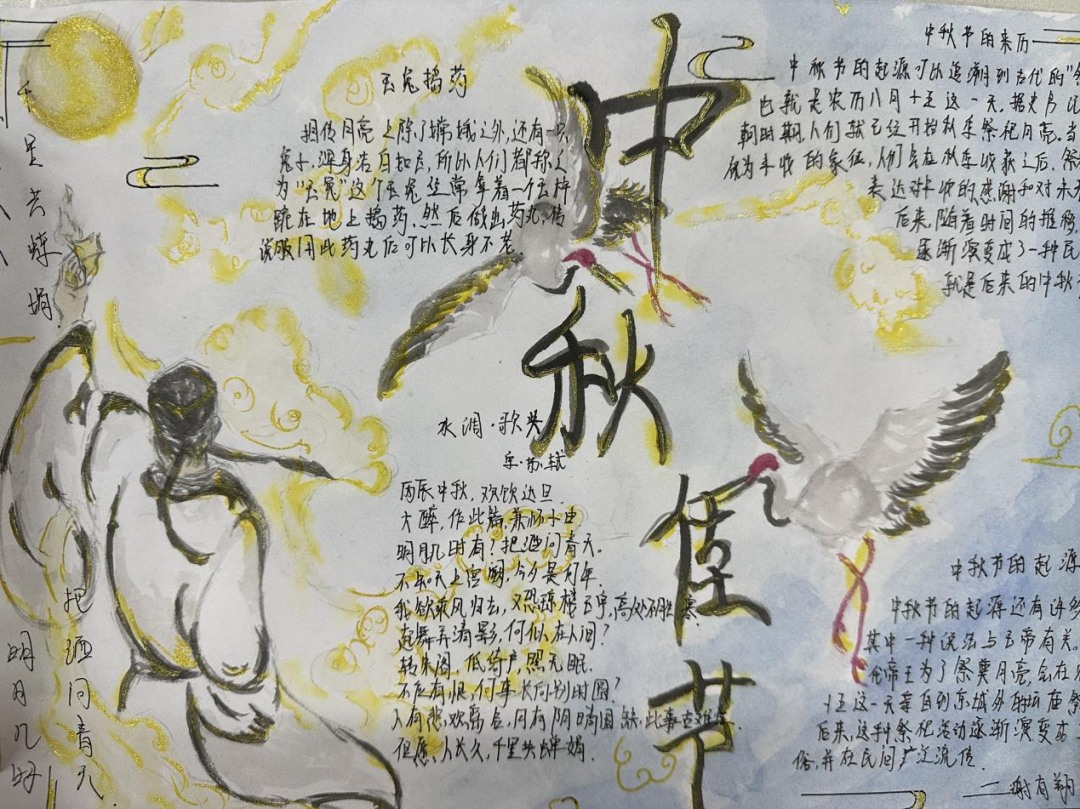 中秋佳节
千里共婵娟
把酒问青天
明月几时
玉兔捣药
相传月亮上除了嫦娥之外,还有一只
兔子,浑身洁白如玉,所以人们都称之
为“玉兔”这个玉兔经常拿着一个玉杵
跪在地上捣药.然后做出药丸,传
说服用此药丸后可以长身不老.
水调·歌头
宋·苏轼
丙辰中秋,欢饮达旦.
大醉,作此篇,兼怀子由
明月几时有?把酒问青天.
不知天上宫阙,今夕是何年.
我欲乘风归去,又恐琼楼玉宇,高处不胜寒
起舞弄清影,何似在人间?
转朱阁,低绮户,照无眠.
不应有恨,何事长向别时圆?
人有悲欢离合,月有阴晴圆缺,此事古难全.
但愿人长久,千里共婵娟.
中秋节的来历
中秋节的起源可以追溯到古代的“
也就是农历八月十五这一天.据史书记
朝时期,人们就已经开始秋季祭祀月亮.当
成为丰收的象征,人们会在秋季收获之后,祭
表达对丰收的感谢和对未
后来,随着时间的推移,
逐渐演变成了一种民
就是后来的中秋
中秋节的起源
中秋节的起源还有许多
其中一种说法与玉帝有关.
代帝王为了祭奠月亮,会在
十五这一天亲自到京城外的坛庙祭
后来,这种祭祀活动逐渐演变成
俗,并在民间广泛流传.
谢有翔